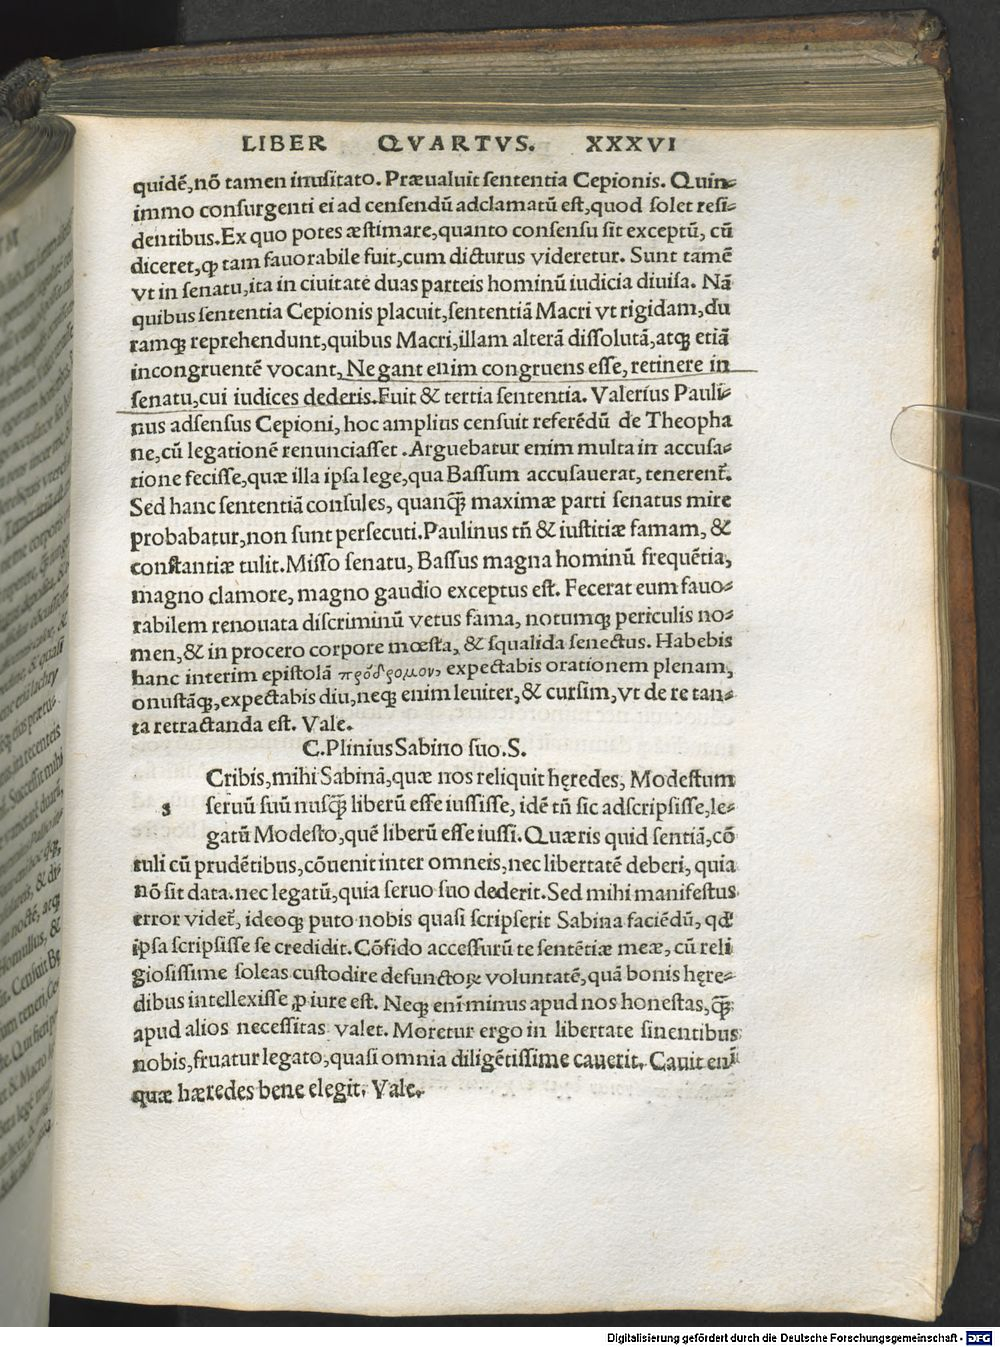 LIBER QVARTVS. XXXVI
quidē,nō tamen inusitato. Præualuit sententia Cepionis. Quin⸗
immo consurgenti ei ad censendū adclamatū est,quod solet resi⸗
dentibus.Ex quo potes æstimare,quanto consensu sit exceptū, cū
diceret,ꝙ tam fauorabile fuit,cum dicturus videretur. Sunt tamē
vt in senatu,ita in ciuitate duas parteis hominū iudicia diuisa. Nā
quibus sententia Cepionis placuit,sententiā Macri vt rigidam,du
ramqꝫ reprehendunt,quibus Macri,illam alterā dissolutā,atqꝫ etiā
incongruentē vocant,Negant enim congruens esse, retinere in
senatu,cui iudices dederis.Fuit & tertia sententia. Valeríus Pauli⸗
nus adsensus Cepioni, hoc amplius censuit referēdū de Theopha
ne,cū legationē renunciasset .Arguebatur enim multa in accusa⸗
tione fecisse,quæ illa ipsa lege,qua Bassum accusauerat, tenerent᷑.
Sed hanc sententiā consules, quanqꝫ̄ maximæ parti senatus mire
probabatur,non sunt persecuti.Paulinus tn̄ & iustitiæ famam, &
constantiæ tulit.Misso senatu, Bassus magna hominū frequētia,
magno clamore, magno gaudio exceptus est. Fecerat eum fauo⸗
rabilem renouata discriminū vetus fama, notumqꝫ periculis no⸗
men,& in procero corpore mœsta, & squalida senectus. Habebis
hanc interim epistolā πρόδρομον, expectabis orationem plenam,
onustāqꝫ,expectabis diu,neqꝫ enim leuiter,& cursim,vt de re tan⸗
ta retractanda est. Vale.
C.Plinius Sabino suo.S.
s Cribis,mihi Sabinā,quæ nos reliquit hęredes, Modestum
seruū suū nusqꝫ̄ liberū esse iussisse, idē tn̄ sic adscripsisse,le⸗
gatū Modesto,quē liberū esse iussi.Quæris quid sentiā,cō
tuli cū prudētibus,cōuenit inter omneis,nec libertatē deberi, quia
nō sit data.nec legatū,quia seruo suo dederit.Sed mihi manifestus
error videt᷑, ideoqꝫ puto nobis quasi scripserit Sabina faciēdū, qđ
ipsa scripsisse se credidit. Cōfido accessurū te sentētiæ meæ, cū reli
giosissime soleas custodire defunctoꝝ voluntatē,quā bonis hęre⸗
dibus intellexisse ꝓ iure est. Neqꝫ eni᷑ minus apud nos honestas,qꝫ̄
apud alios necessitas valet. Moretur ergo in libertate sinentibus
nobis,fruatur legato,quasi omnia diligētissime cauerit. Cauit eni᷑
quæ hæredes bene elegit. Vale.
Digitalisierung gefördert durch die Deutsche Forschungsgemeinschaft - DFG